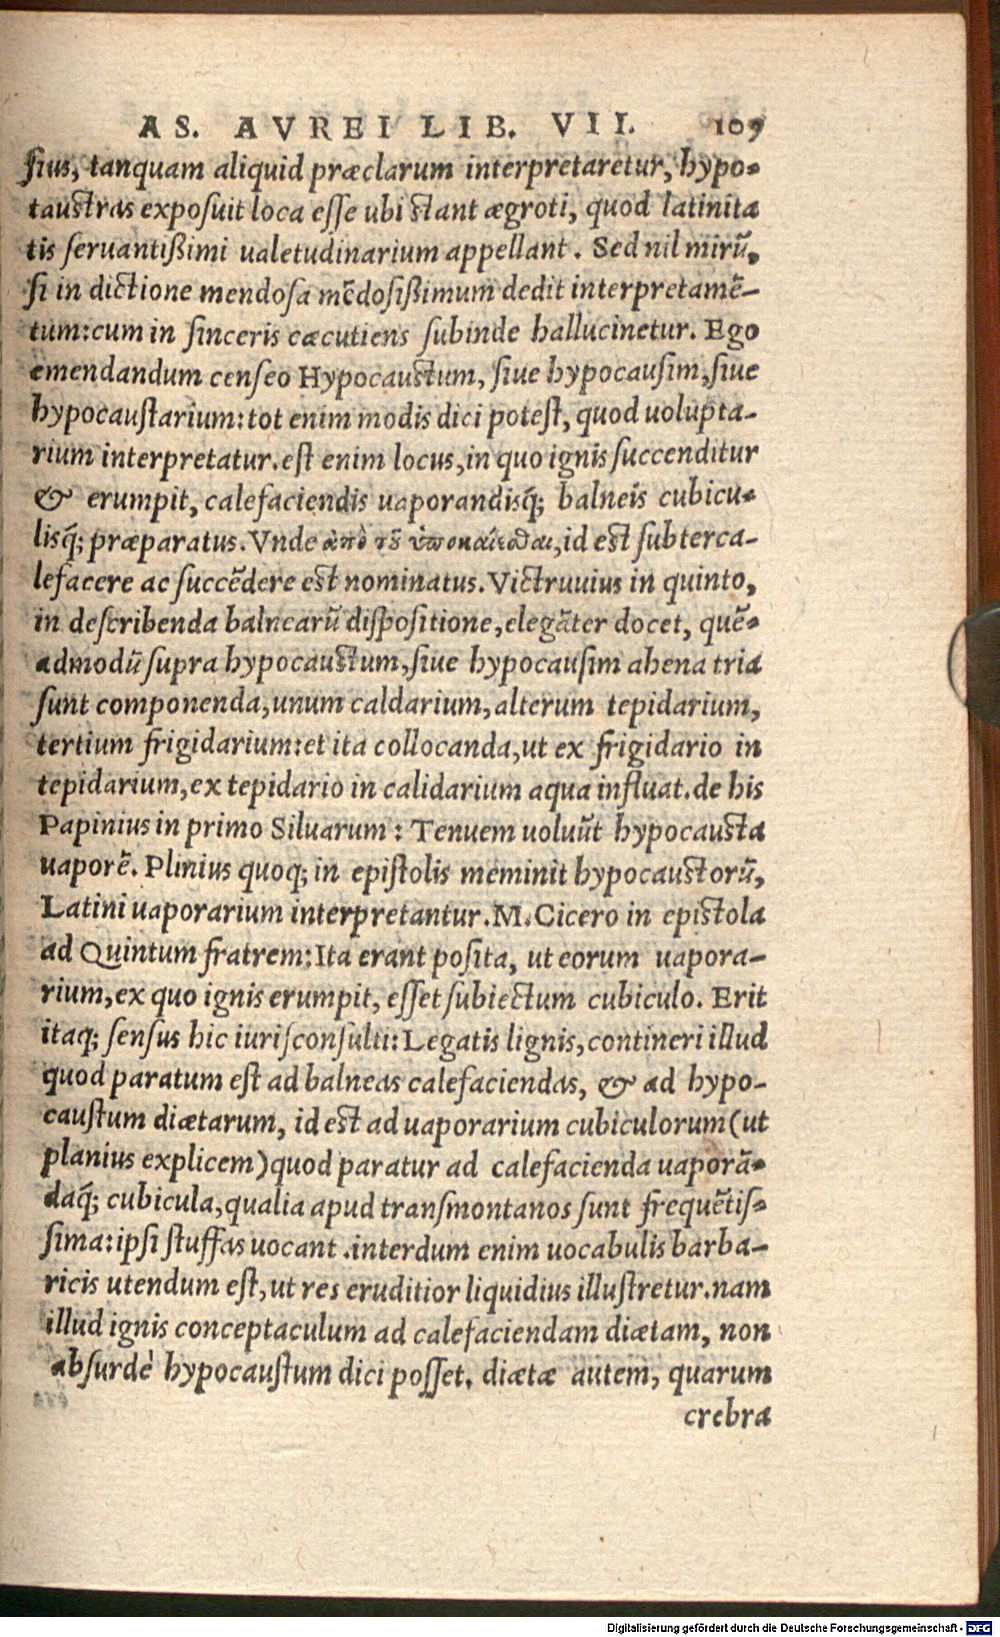 AS. AVREI LIB. VII. 109
ſius, tanquam aliquid præclarum interpretaretur, hypo-
tauſtras expoſuit loca eſſe ubi ſtant ægroti, quod latinita
tis ſeruantißimi ualetudinarium appellant. Sed nil mirũ,
ſi in dictione mendoſa mẽdoſißimum dedit interpretamẽ-
tum: cum in ſinceris cæcutiens ſubinde hallucinetur. Ego
emendandum cenſeo Hypocauſtum, ſiue hypocauſim, ſiue
hypocauſtarium: tot enim modis dici poteſt, quod uolupta-
rium interpretatur. eſt enim locus, in quo ignis ſuccenditur
& erumpit, calefaciendis uaporandisq́; balneis cubicu-
lisq́; præparatus. Vnde ἀπὸ τȣ͂ ὑποκαίεσθαι, id eſt ſubterca-
lefacere ac ſuccẽdere eſt nominatus. Victruuius in quinto,
in deſcribenda balnearũ diſpoſitione, elegãter docet, quẽ-
admodũ ſupra hypocauſtum, ſiue hypocauſim ahena tria
ſunt componenda, unum caldarium, alterum tepidarium,
tertium frigidarium: et ita collocanda, ut ex frigidario in
tepidarium, ex tepidario in calidarium aqua influat. de his
Papinius in primo Siluarum: Tenuem uoluũt hypocauſta
uaporẽ. Plinius quoq; in epiſtolis meminit hypocauſtorũ,
Latini uaporarium interpretantur. M. Cicero in epiſtola
ad Quintum fratrem: Ita erant poſita, ut eorum uapora-
rium, ex quo ignis erumpit, eſſet ſubiectum cubiculo. Erit
itaq; ſenſus hic iuriſconſulti: Legatis lignis, contineri illud
quod paratum eſt ad balneas calefaciendas, & ad hypo-
cauſtum diætarum, id eſt ad uaporarium cubiculorum (ut
planius explicem) quod paratur ad calefacienda uaporã-
daq́; cubicula, qualia apud tranſmontanos ſunt frequẽtiſ-
ſima: ipſi ſtuffas uocant. interdum enim uocabulis barba-
ricis utendum eſt, ut res eruditior liquidius illuſtretur. nam
illud ignis conceptaculum ad calefaciendam diætam, non
abſurdè hypocauſtum dici poſſet. diætæ autem, quarum
crebra
Digitalisierung gefördert durch die Deutsche Forschungsgemeinschaft - DFG